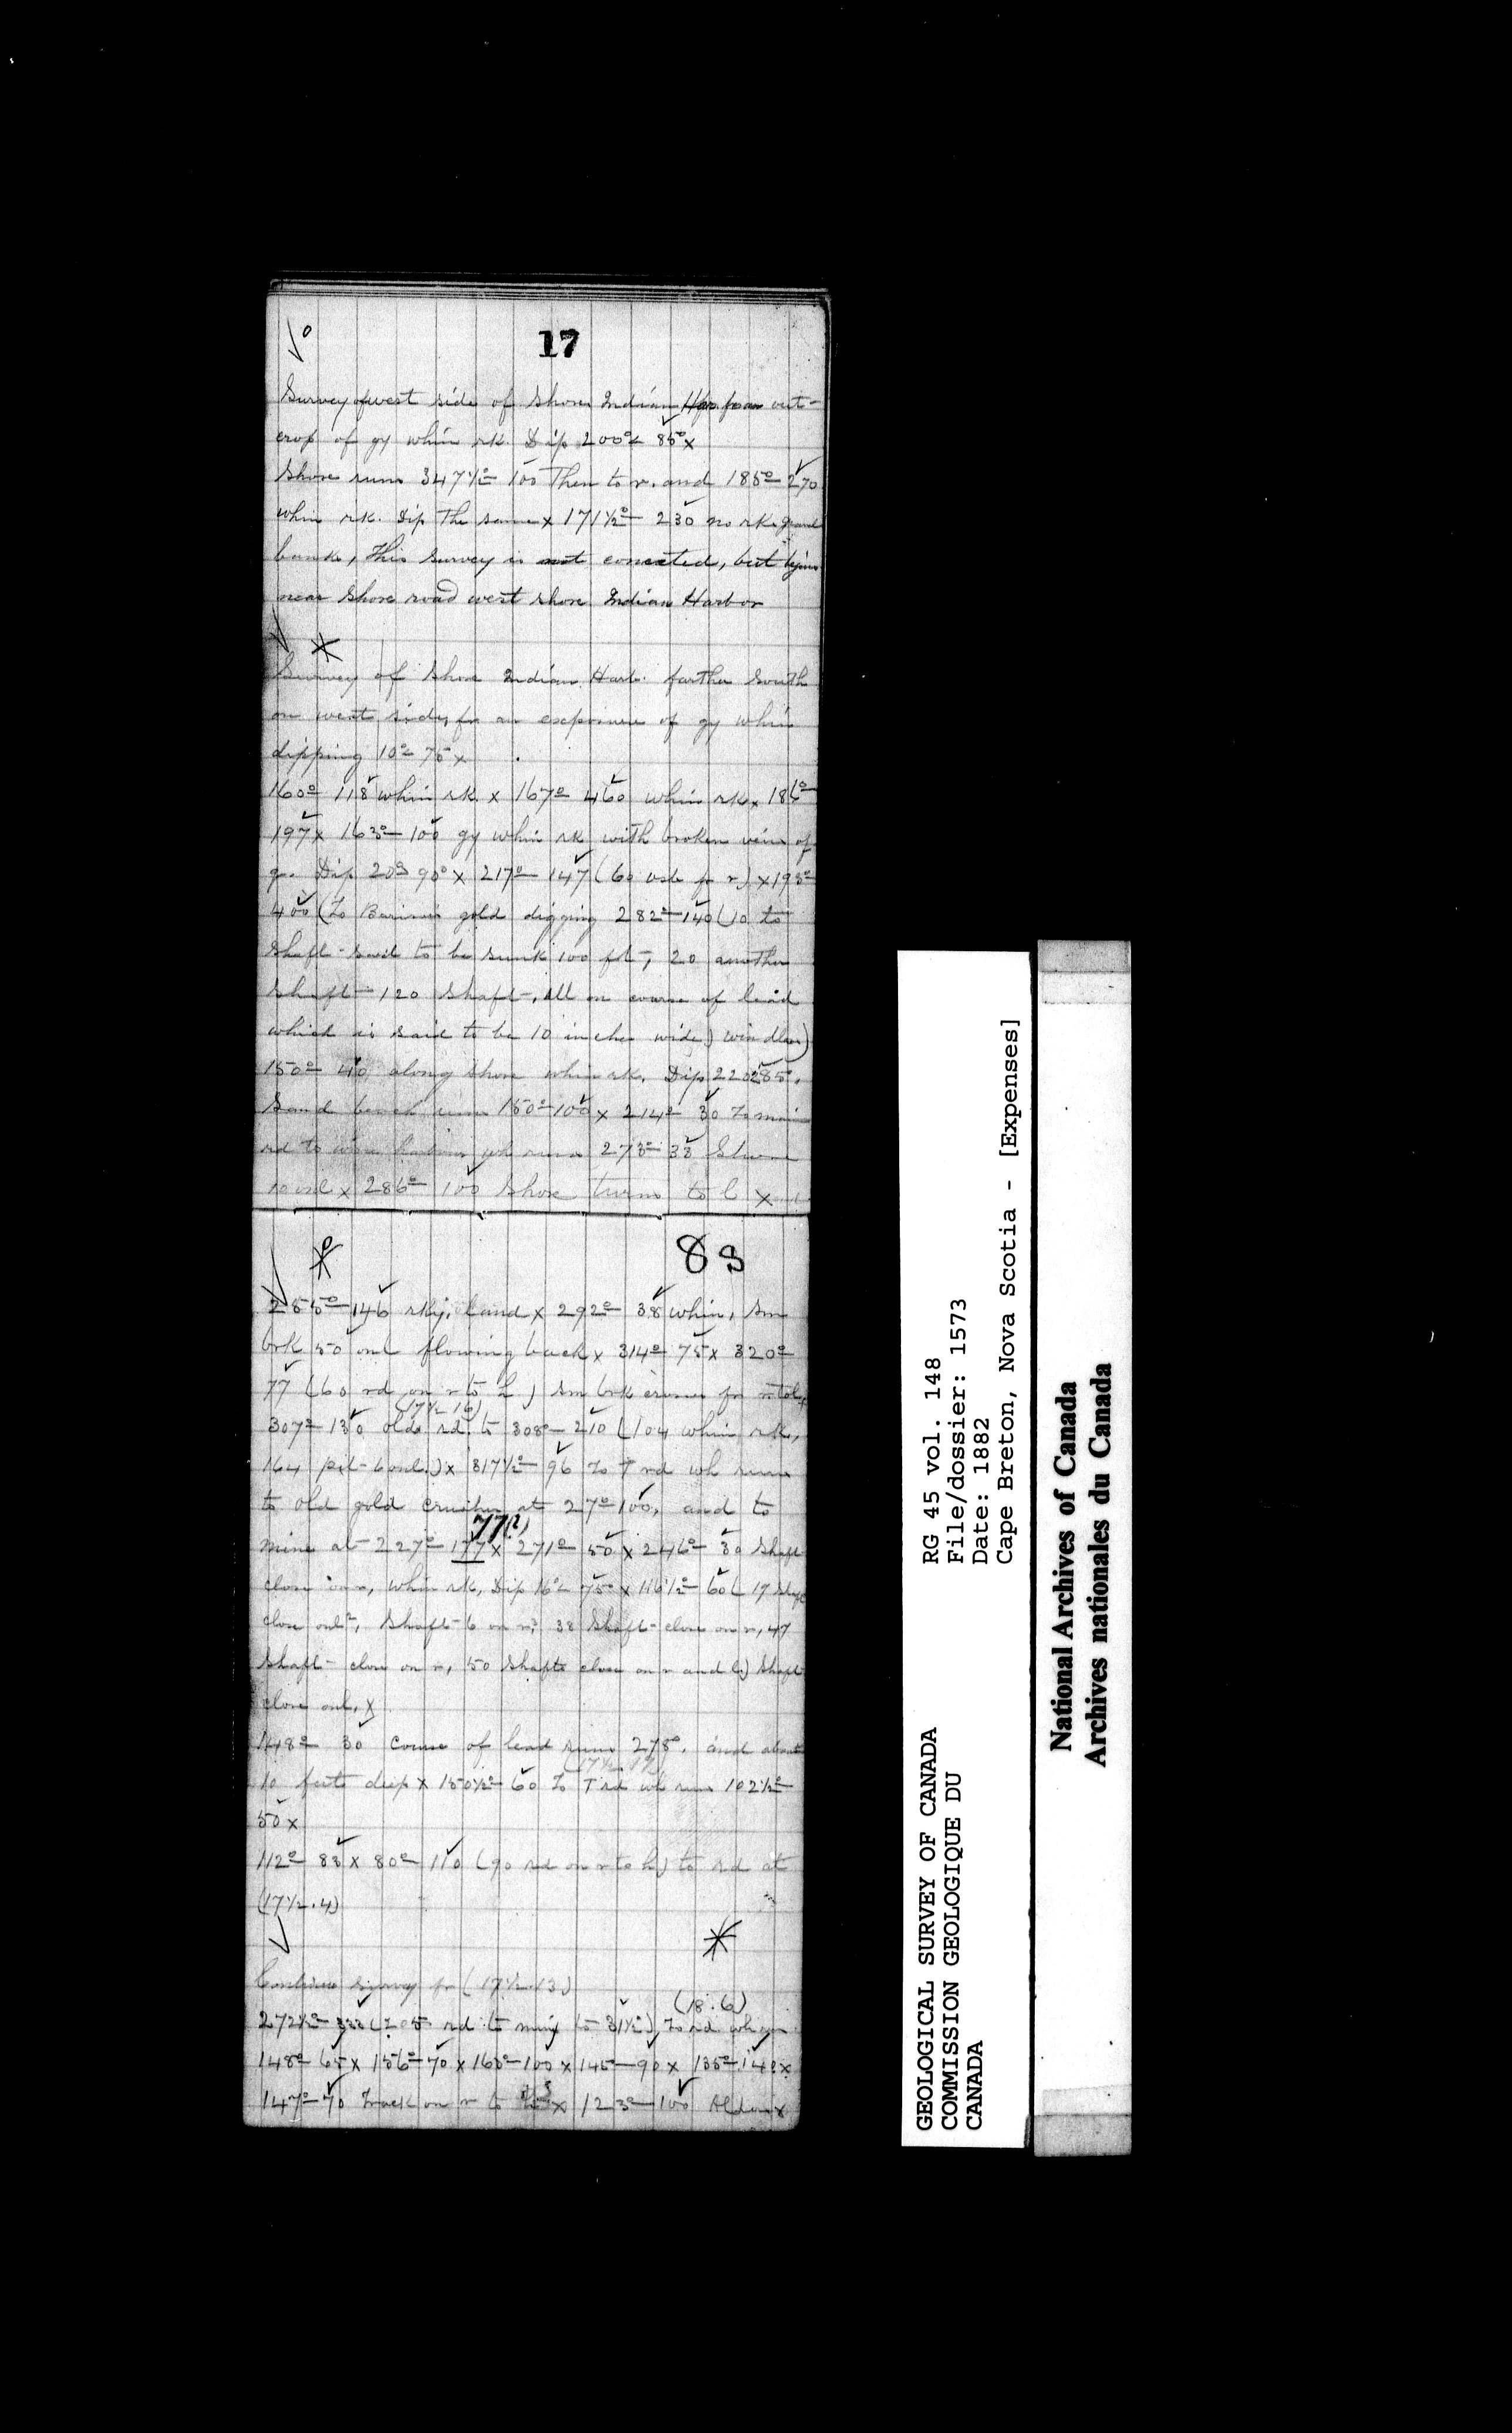 17
Survey of west side of shore Indian Har. from out-
crop of gy whin rk. Dip 200° 85° x
Shore runs 347½° 100 Then to r. and 185° 270
whin rk. Dip the same x 171½° 230 no rk. gravel
bank, This survey is not conected, but begins
near shore road west shore Indian Harbor
Survey of shore Indian Harb. farther south
on west side, fr an exposure of gy whin
dipping 10° 75 x
160° 118 whin rk. x 167° 460 whin rk x
197 x 163° 100 gy whin rk with broken vein of
q. Dip 20° 90° x 217° 147 (60 fr r) x 193°
400 (To gold digging 282° 140 (10 to
shaft said to be sunk 100 ft, 20 another
shaft 120 shaft, all on course of lead
which is said to be 10 inches wide)
150° 40 along shore whin rk. Dip 85°.
Sand beach runs 150° 100 x 214° 30 To main
rd to wh runs 273° 38 Shore
10 onl x 286° 100 Shore turns to l x and
8 9
255° 146 rky. land x 292° 38 whin, sm
brk 50 onl flowing back x 314° 75 x 320°
77 (60 rd on r to h) sm brk crosses fr r to l x
(17½.16)
307° 130 old rd. to 308° 210 (104 whin rk,
164 pit 6 onl.) x 317½° 96 To T rd wh runs
to old gold crusher at 27° 100, and to
77(?)
mine at 227° 177 x 271° 50 x 246° 30 Shaft
close on r, whin rk, Dip 16° 75° x 116½° 60 (17 shaft
close onl, Shaft 6 on r, 38 Shaft close on r, 47
Shaft close on r, 50 Shafts close on r and l.) Shaft
close onl, x
148° 30 Course of lead runs 278°. and about
10 feet deep x 150½° 60 To T rd wh runs 102½°
50 x
112° 83 x 80° 110 (90 rd on r to h) to rd at
(17½.4)
Continue survey fr (17½.13)
(18.6)
272½° 323 (205 rd to mine to 31½°) To rd wh runs
148° 65 x 156° 70 x 160° 100 x 145 90 x 135° 140 x
147° 70 Track on r to x 123° 100 Alders x
GEOLOGICAL SURVEY OF CANADA
COMMISSION GEOLOGIQUE DU
CANADA
RG 45 vol. 148
File/dossier: 1573
Date: 1882
Cape Breton, Nova Scotia - [Expenses]
National Archives of Canada
Archives nationales du Canada